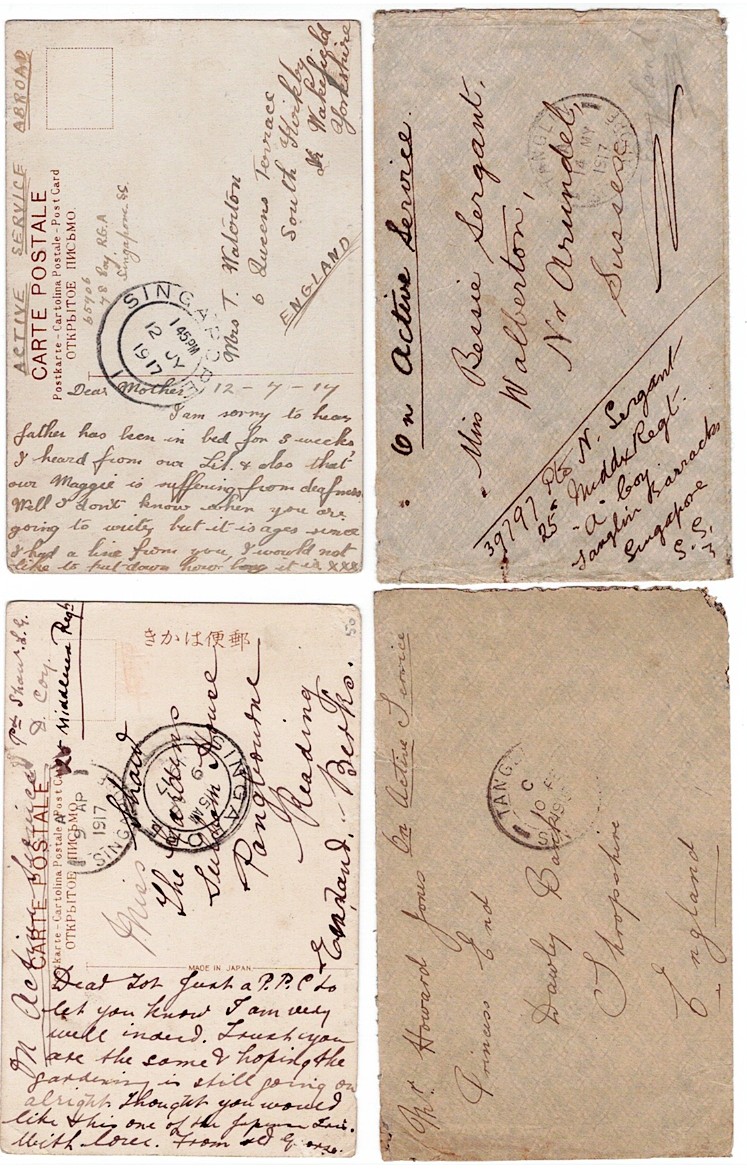 ACTIVE SERVICE ABROAD
CARTE POSTALE
Postkarte - Cartolina Postale - Post Card
ОТКРЫТОЕ ПИСЬМО.
65906
78 Coy. R.G.A
Singapore. SS.
SINGAPORE
1 45PM
12 JY
1917
Mrs T. Waterton
6 Queens Terrace
South Kirkby
Nr Wakefield
Yorkshire
ENGLAND
Dear Mother, 12-7-17
I am sorry to hear
father has been in bed for 3 weeks
I heard from our Lil. & also that
our Maggie is suffering from deafness
Well I dont know when you are
going to write, but it is ages since
I had a line from you, I would not
like to put down how long it is xxx
On Active Service.
Miss Bessie Sergant,
Walberton,
Nr Arundel,
Sussex
TANGLIN
14 MY
1917
39797 Pte N. Sergant
25th Middx Regt.
"A" Coy.
Tanglin Barracks
Singapore
S.S.
On Active Service
Pte Shaw. G.
D. Coy.
Middlesex Regt
50
きかは便郵
CARTE POSTALE
Postkarte - Cartolina Postale - Post Card
ОТКРЫТОЕ ПИСЬМО.
AP
1917
SINGAPORE
SINGAPORE
Miss Shaw
The
House
Pangbourne
Reading
Berks.
England.
MADE IN JAPAN
Dear Dot Just a P.P.C to
let you know I am very
well indeed. Trust you
are the same & hoping the
gardening is still going on
alright. Thought you would
like this one of the Japanese
With love. From old George.
On Active Service
TANGLIN
Mr Howard Jones
Princess End
Dawley Bank
Shropshire
England